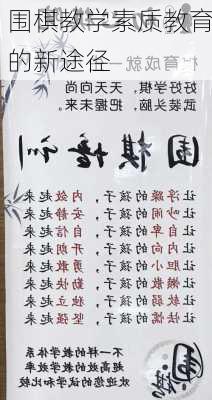 围棋教学素质教育
的新途径
育成就
武装头脑，把握未来。
围棋
让浮躁的孩子，内敛起来
让吵闹的孩子，安静起来
让自卑的孩子，自信起来
让内向的孩子，开朗起来
让胆小的孩子，勇敢起来
让懒散的孩子，勤快起来
让软弱的孩子，独立起来
让怯懦的孩子，坚强起来
不一样的教学体系
高效的教学效率
欢迎您的试学和比较
围棋